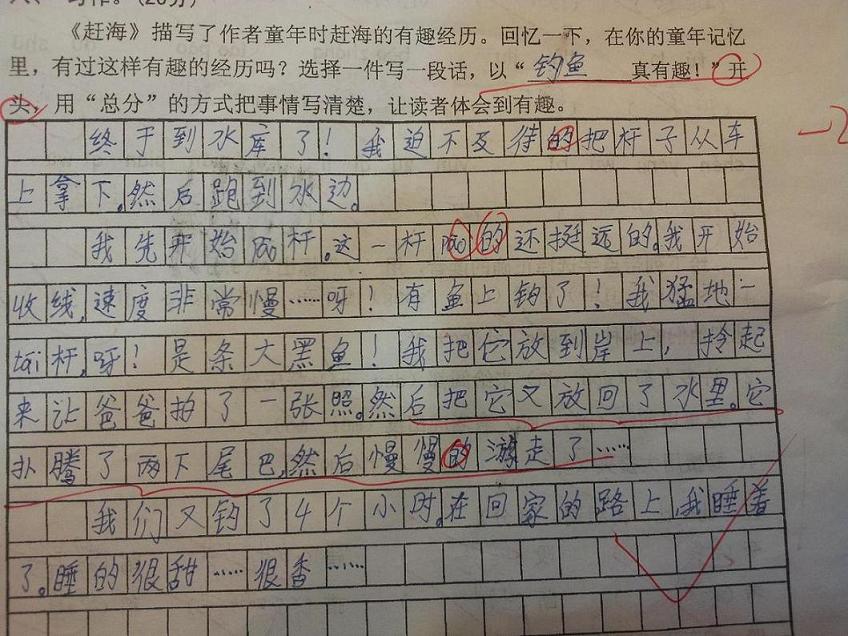 写作。(20分)
《赶海》描写了作者童年时赶海的有趣经历。回忆一下，在你的童年记忆
里，有过这样有趣的经历吗？选择一件写一段话，以“钓鱼 真有趣！”开
头，用“总分”的方式把事情写清楚，让读者体会到有趣。
终于到水库了！我迫不及待的把杆子从车 -2
上拿下。然后跑到水边。
我先开始成杆。这一杆pāo的还挺远的。我开始
收线，速度非常慢……呀！有鱼上钩了！我猛地一
tái杆，呀！是条大黑鱼！我把它放到岸上，拎起
来让爸爸拍了一张照。然后把它又放回了水里。它
扑腾了两下尾巴，然后慢慢的游走了……
我们又钓了4个小时。在回家的路上，我睡着
了。睡的很甜……很香……